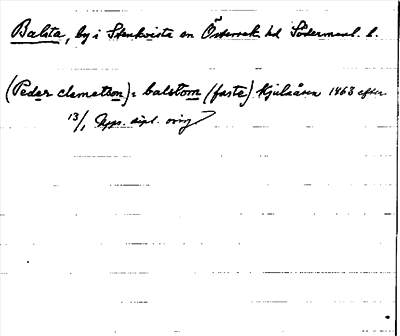 Balsta, by i Stenkvista sn Österrek hd Södermanl. l.
(Peder clemetson) i balstom (faste) Kjulaåsen 1463 efter
13/1 Upps. dipl. orig